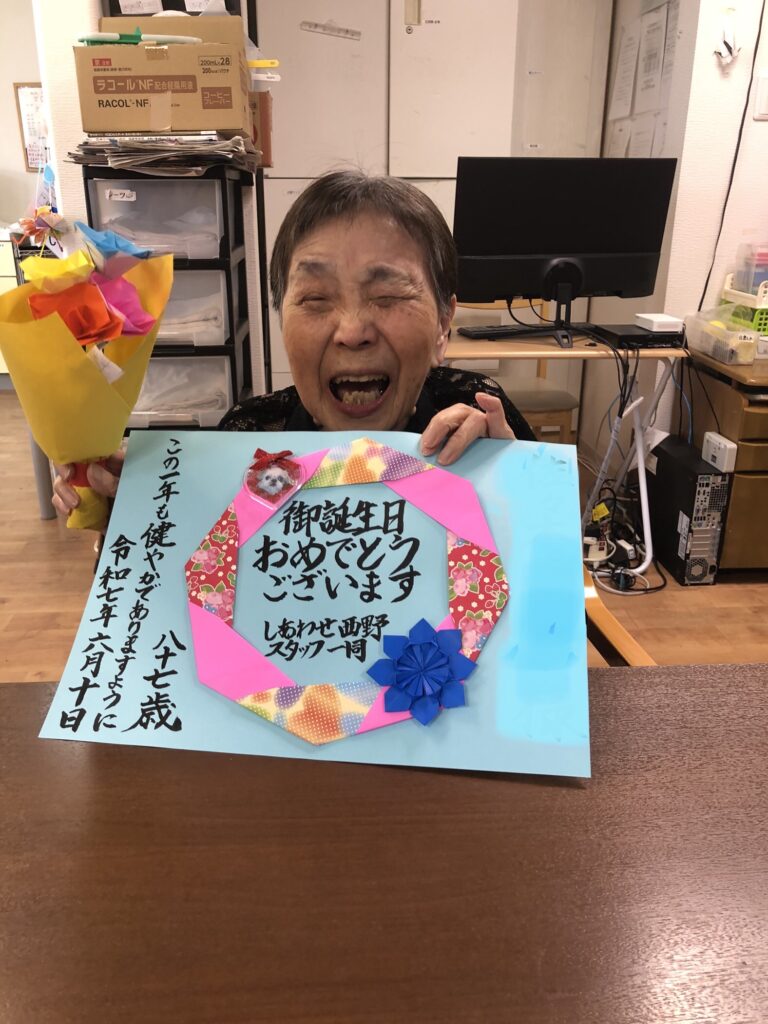 200mL×28
200kcal/パウチ
ラコール®NF 配合経腸用液
RACOL®-NF
コーヒー
フレーバー
御誕生日
おめでとう
ございます
しあわせ西野
スタッフ一同
八十七歳
この一年も健やかでありますように
令和七年六月十日